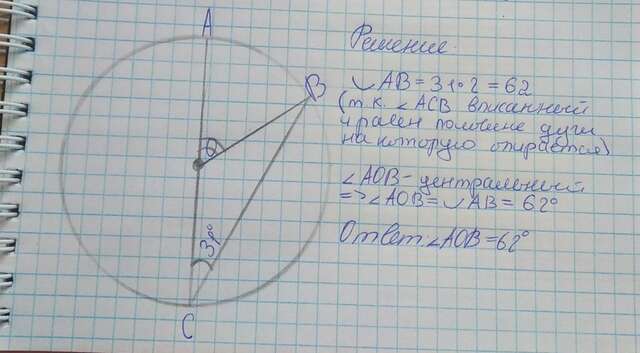 A
B
31°
C
Решение.
◡AB = 31·2 = 62
(т.к. ∠ACB вписанный
и равен половине дуги
на которую опирается)
∠AOB - центральный
=> ∠AOB = ◡AB = 62°
Ответ: ∠AOB = 62°